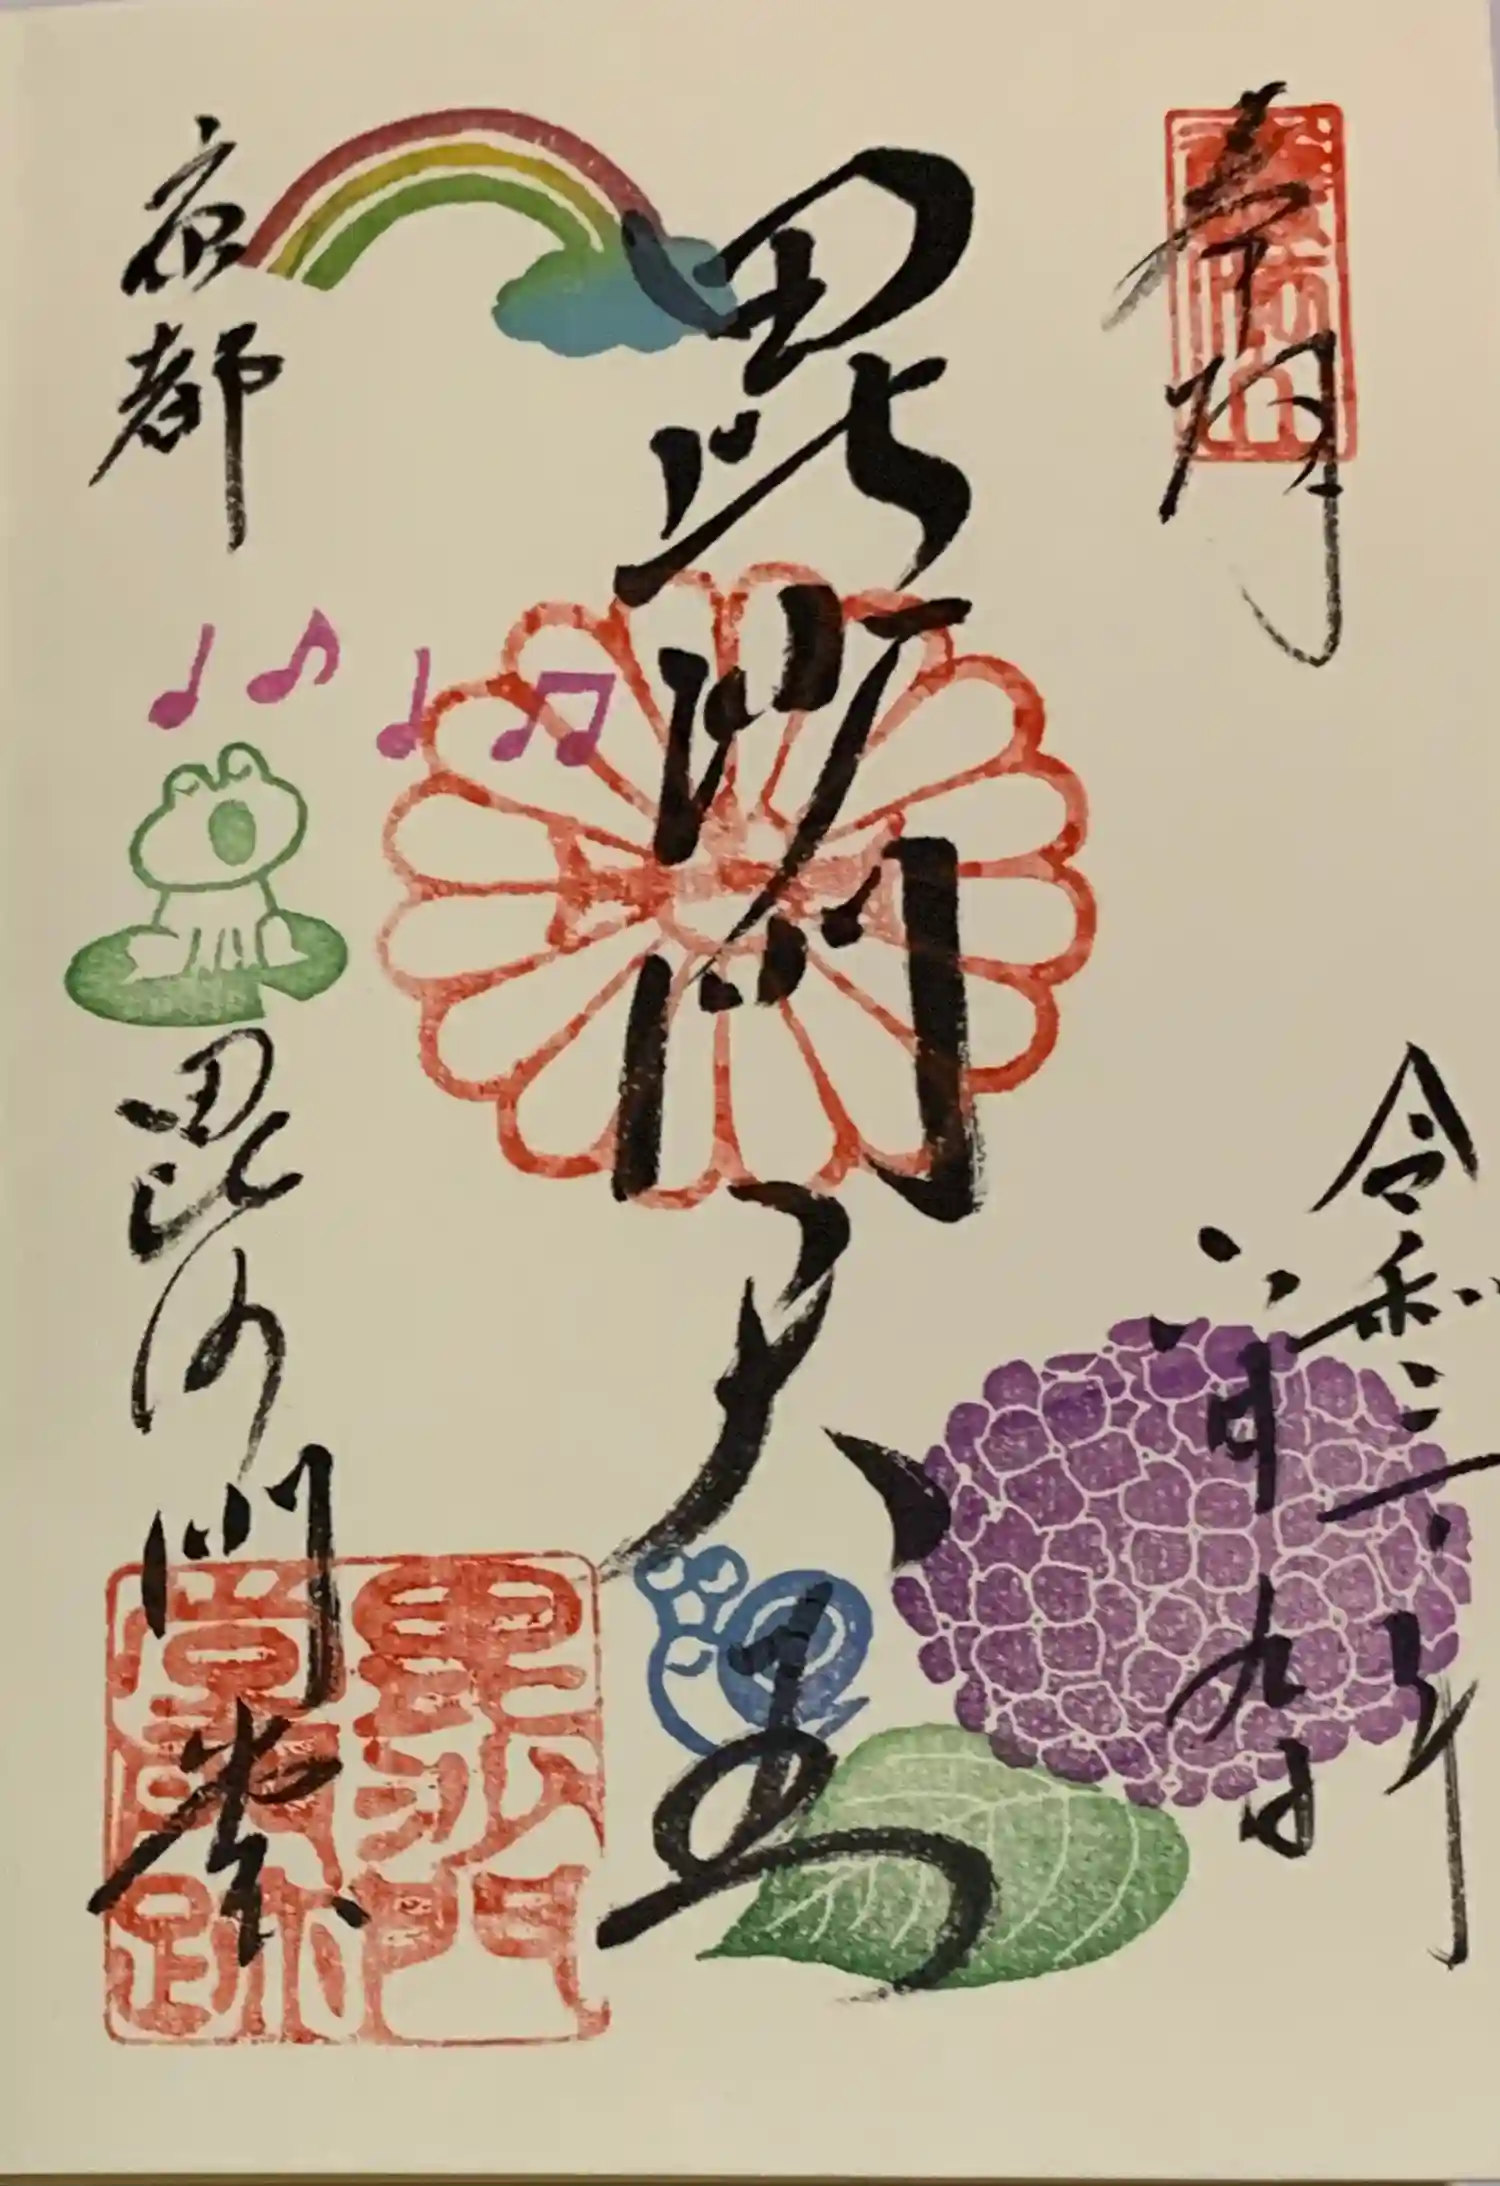 奉拝
護法山
令和三年
六月九日
毘沙門天王
京都
毘沙門堂
毘沙門
堂門跡